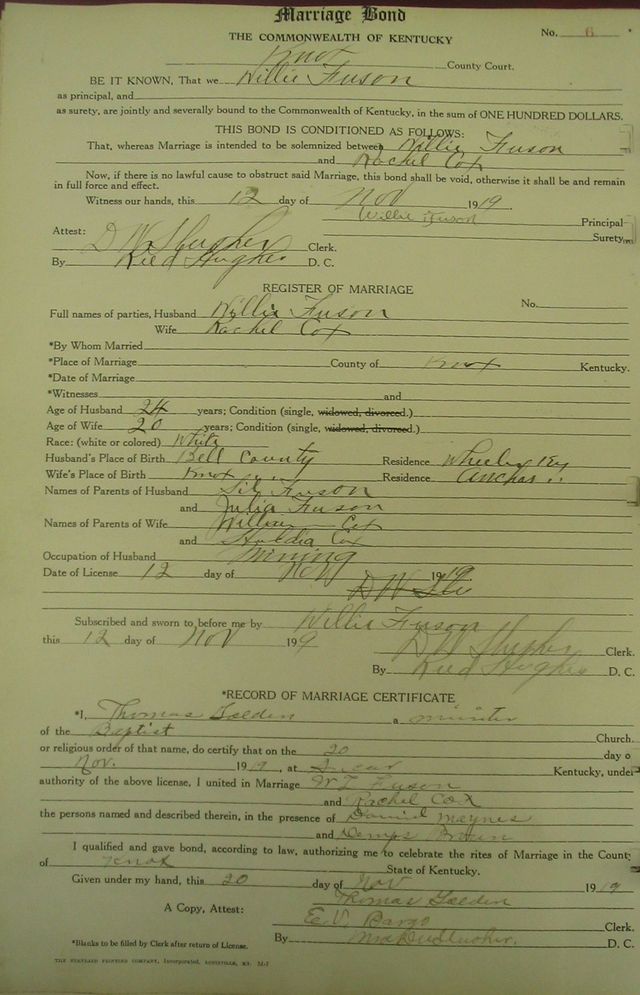 Marriage Bond
THE COMMONWEALTH OF KENTUCKY
No. 6
Knox County Court.
BE IT KNOWN, That we Willie Fuson
as principal, and
as surety, are jointly and severally bound to the Commonwealth of Kentucky, in the sum of ONE HUNDRED DOLLARS.
THIS BOND IS CONDITIONED AS FOLLOWS:
That, whereas Marriage is intended to be solemnized between Willie Fuson
and Rachel Cox
Now, if there is no lawful cause to obstruct said Marriage, this bond shall be void, otherwise it shall be and remain
in full force and effect.
Witness our hands, this 12 day of Nov 1919.
Willie Fuson Principal
Surety
Attest:
D W Clerk.
By Reed Hughes D. C.
REGISTER OF MARRIAGE
Full names of parties, Husband Willie Fuson No.
Wife Rachel Cox
*By Whom Married
*Place of Marriage County of Knox Kentucky.
*Date of Marriage
*Witnesses and
Age of Husband 24 years; Condition (single, widowed, divorced.)
Age of Wife 20 years; Condition (single, widowed, divorced.)
Race: (white or colored) White
Husband's Place of Birth Bell County Residence Ky
Wife's Place of Birth Knox " Residence "
Names of Parents of Husband Fuson
and Julia Fuson
Names of Parents of Wife Cox
and Cox
Occupation of Husband Mining
Date of License 12 day of Nov 1919.
D W
Subscribed and sworn to before me by Willie Fuson
this 12 day of Nov 19 9 D W Clerk.
By Reed Hughes D. C.
*RECORD OF MARRIAGE CERTIFICATE
*I, Thomas Golden a minister
of the Baptist Church.
or religious order of that name, do certify that on the 20 day o
Nov. 1919, at Kentucky, under
authority of the above license, I united in Marriage Fuson
and Rachel Cox
the persons named and described therein, in the presence of Daniel Maynes
and Brown
I qualified and gave bond, according to law, authorizing me to celebrate the rites of Marriage in the County
of Knox State of Kentucky.
Given under my hand, this 20 day of Nov 1919
Thomas Golden
A Copy, Attest: E. V. Bargo Clerk.
By D. C.
*Blanks to be filled by Clerk after return of License.
THE STANDARD PRINTING COMPANY, Incorporated, LOUISVILLE, KY.